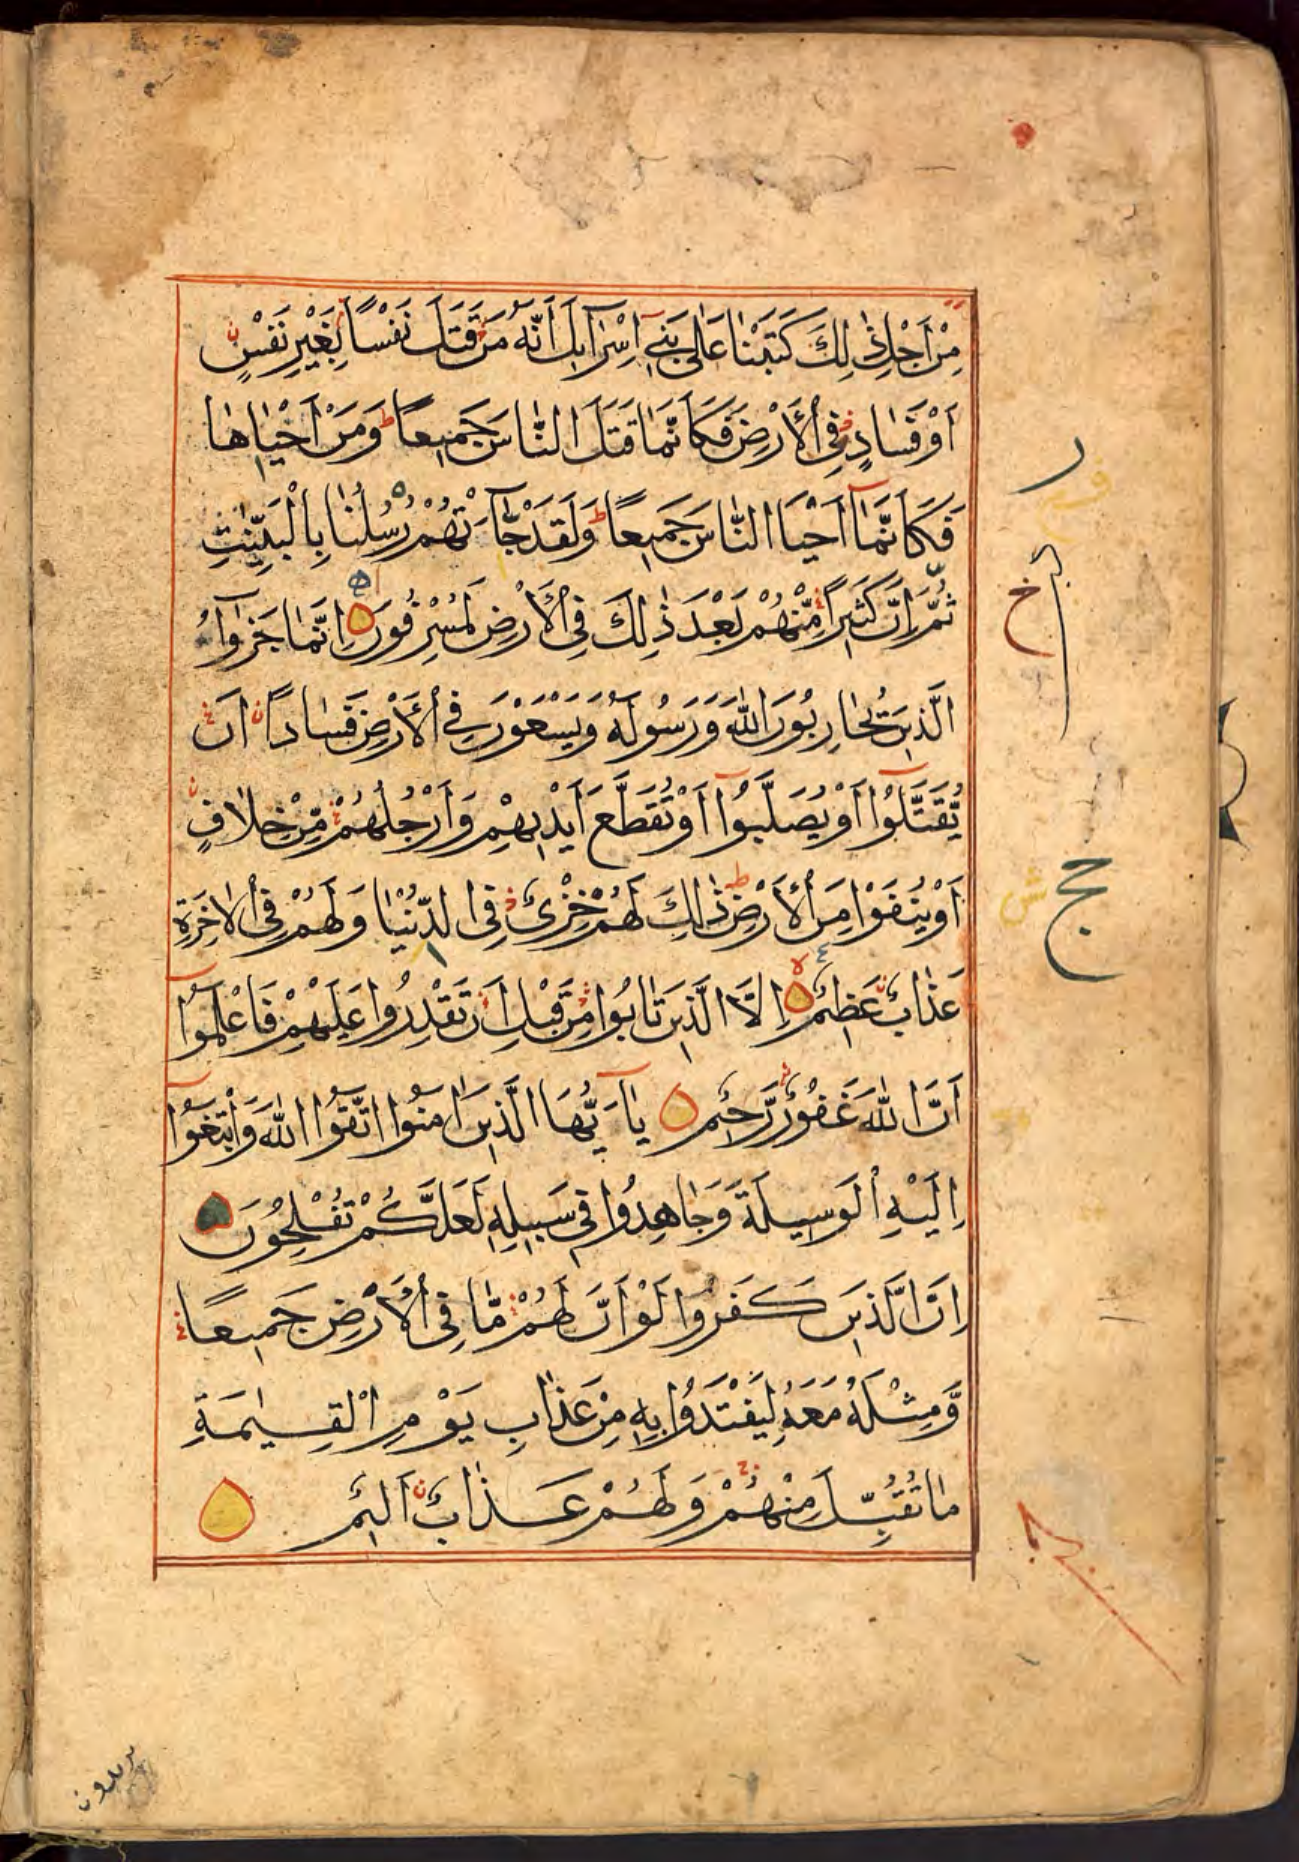 مِنْ اَجْلِ ذٰلِكَ كَتَبْنَا عَلٰى بَنِىٓ اِسْرَآءِيلَ اَنَّهُ مَنْ قَتَلَ نَفْسًا بِغَيْرِ نَفْسٍ
اَوْ فَسَادٍ فِى الْاَرْضِ فَكَاَنَّمَا قَتَلَ النَّاسَ جَمِيعًا ط وَمَنْ اَحْيَاهَا
فَكَاَنَّمَآ اَحْيَا النَّاسَ جَمِيعًا ط وَلَقَدْ جَآءَتْهُمْ رُسُلُنَا بِالْبَيِّنٰتِ
ثُمَّ اِنَّ كَثِيرًا مِّنْهُمْ بَعْدَ ذٰلِكَ فِى الْاَرْضِ لَمُسْرِفُونَ اِنَّمَا جَزٰٓؤُا
الَّذِينَ يُحَارِبُونَ اللّٰهَ وَرَسُولَهُ وَيَسْعَوْنَ فِى الْاَرْضِ فَسَادًا اَنْ
يُّقَتَّلُوٓا اَوْ يُصَلَّبُوٓا اَوْ تُقَطَّعَ اَيْدِيهِمْ وَاَرْجُلُهُمْ مِّنْ خِلَافٍ
اَوْ يُنْفَوْا مِنَ الْاَرْضِ ط ذٰلِكَ لَهُمْ خِزْىٌ فِى الدُّنْيَا وَلَهُمْ فِى الْاٰخِرَةِ
عَذَابٌ عَظِيمٌ اِلَّا الَّذِينَ تَابُوا مِنْ قَبْلِ اَنْ تَقْدِرُوا عَلَيْهِمْ فَاعْلَمُوٓا
اَنَّ اللّٰهَ غَفُورٌ رَّحِيمٌ يَآ اَيُّهَا الَّذِينَ اٰمَنُوا اتَّقُوا اللّٰهَ وَابْتَغُوٓا
اِلَيْهِ الْوَسِيلَةَ وَجَاهِدُوا فِى سَبِيلِهِ لَعَلَّكُمْ تُفْلِحُونَ
اِنَّ الَّذِينَ كَفَرُوا لَوْ اَنَّ لَهُمْ مَّا فِى الْاَرْضِ جَمِيعًا
وَّمِثْلَهُ مَعَهُ لِيَفْتَدُوا بِهِ مِنْ عَذَابِ يَوْمِ الْقِيٰمَةِ
مَا تُقُبِّلَ مِنْهُمْ وَلَهُمْ عَذَابٌ اَلِيمٌ
يريدون